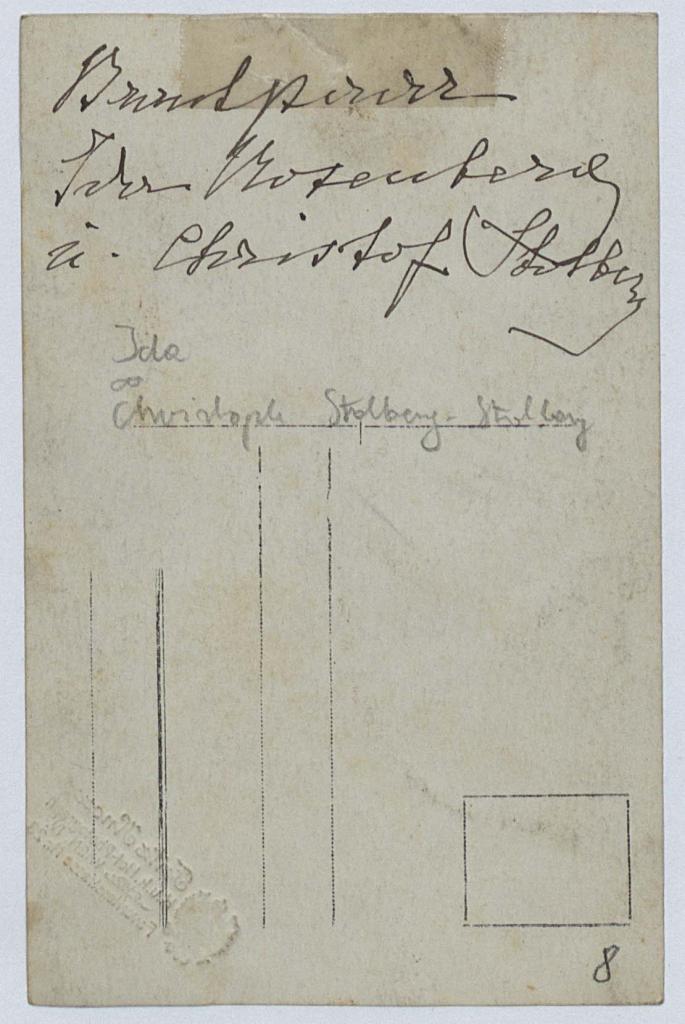 Brautpaar
Ida Rosenberg
u. Christof Stolberg
Ida
∞
Christoph Stolberg-Stolberg
8